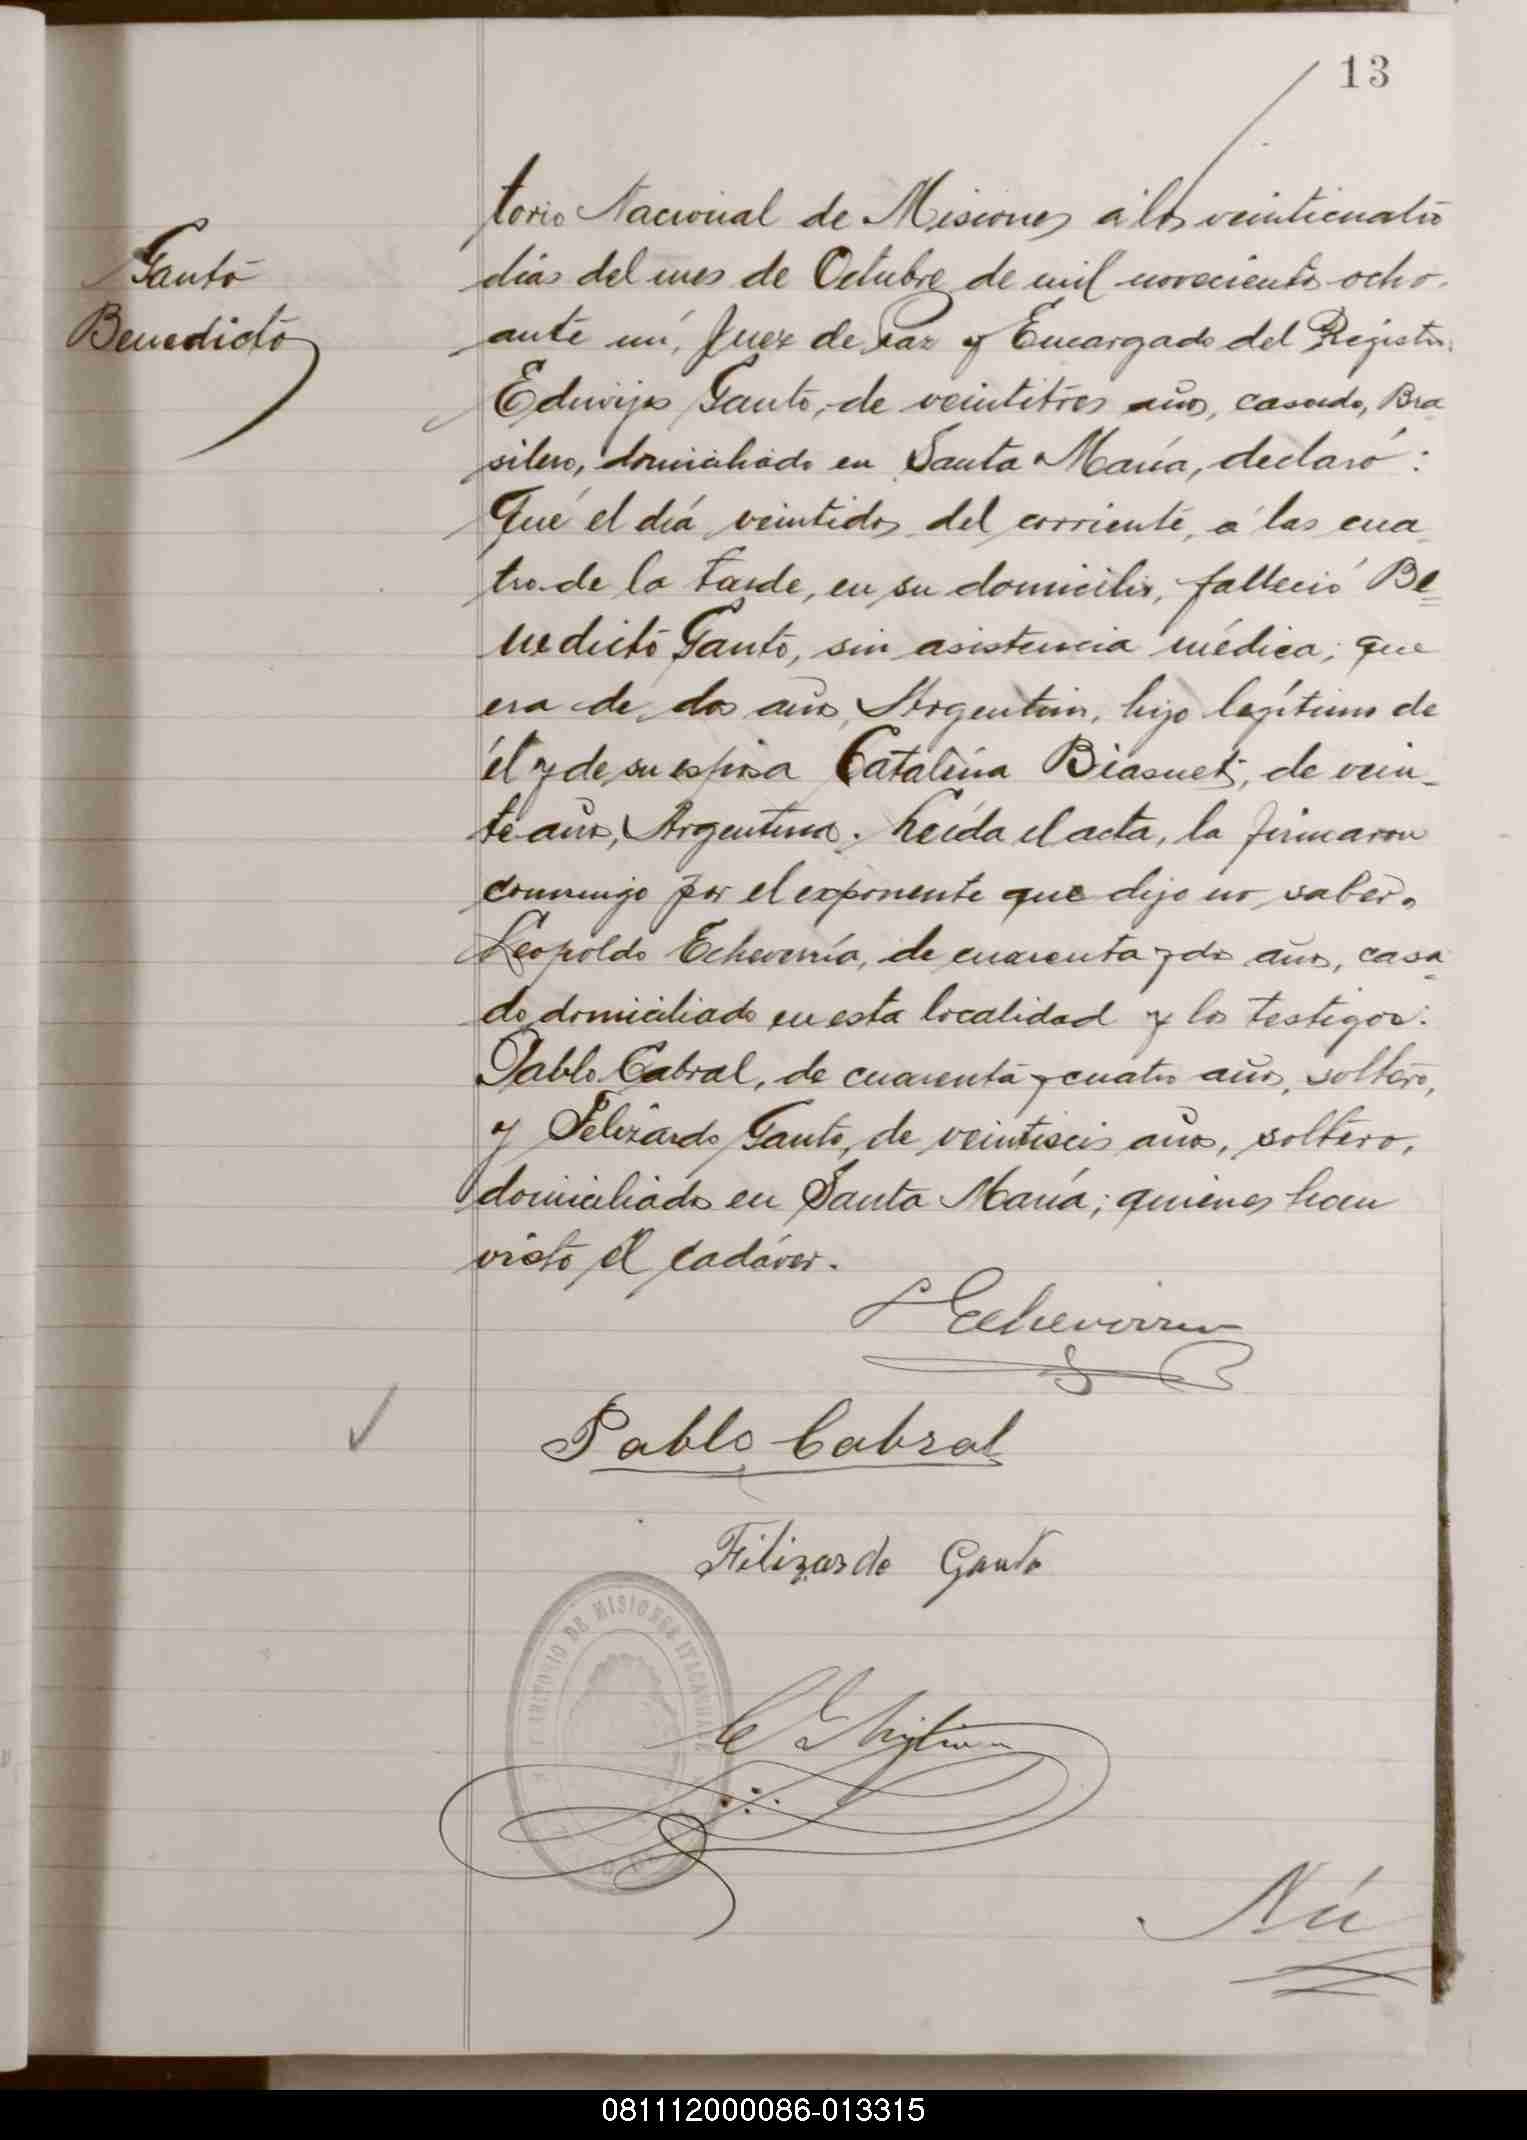 13
Gauto
Benedicto
torio Nacional de Misiones á los veinticuatro
días del mes de Octubre de mil novecientos ocho,
ante mí, Juez de Paz y Encargado del Registro,
Eduvijes Gauto, de veintitres años, casado, Bra
silero, domiciliado en Santa María, declaró:
Que el día veintidos del corriente, á las cua
tro de la tarde, en su domicilio, falleció Be=
nedicto Gauto, sin asistencia médica; que
era de dos años, Argentino, hijo legítimo de
él y de su esposa Catalina, de vein-
te años, Argentina. Leída el acta, la firmaron
conmigo por el exponente que dijo no saber,
Leopoldo Echeverría, de cuarenta y dos años, casa-
do domiciliado en esta localidad y los testigos:
Pablo Cabral, de cuarenta y cuatro años, soltero,
y Felizardo Gauto, de veintiseis años, soltero,
domiciliados en Santa María; quienes han
visto el cadáver.
L Echeverria
Pablo Cabral
Filizardo Gauto
TERRITORIO DE MISIONES ITACARUARE
Nú
081112000086-013315